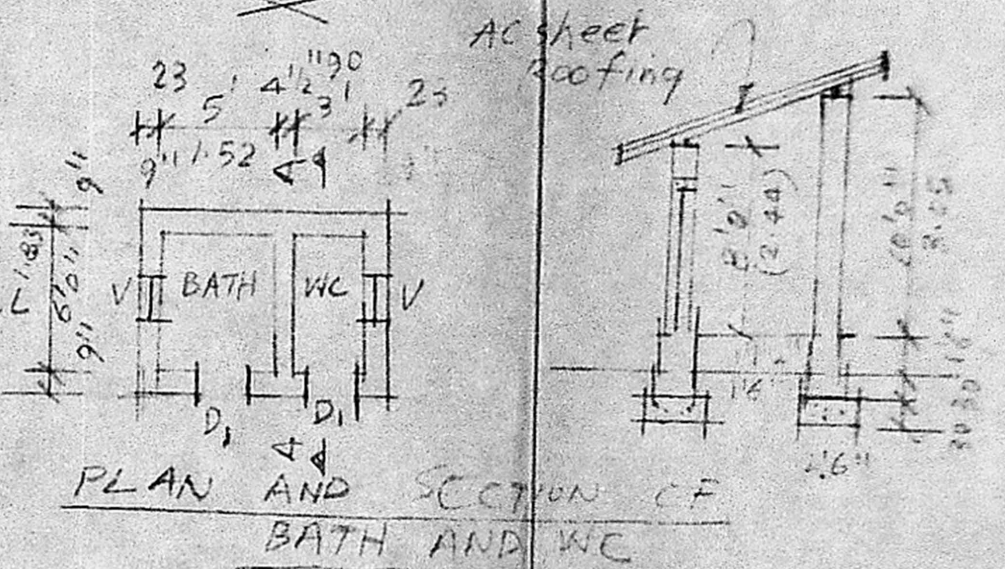 AC sheet
Roofing
23 5' 4½" 90 3' 23
9" 1.52
9"
6'0" 1.83
9"
V BATH WC V
D1 D1
8'0"
(2.44)
10'0"
3.05
1'6"
1'6"
30 30
1'6"
PLAN AND SECTION OF
BATH AND WC